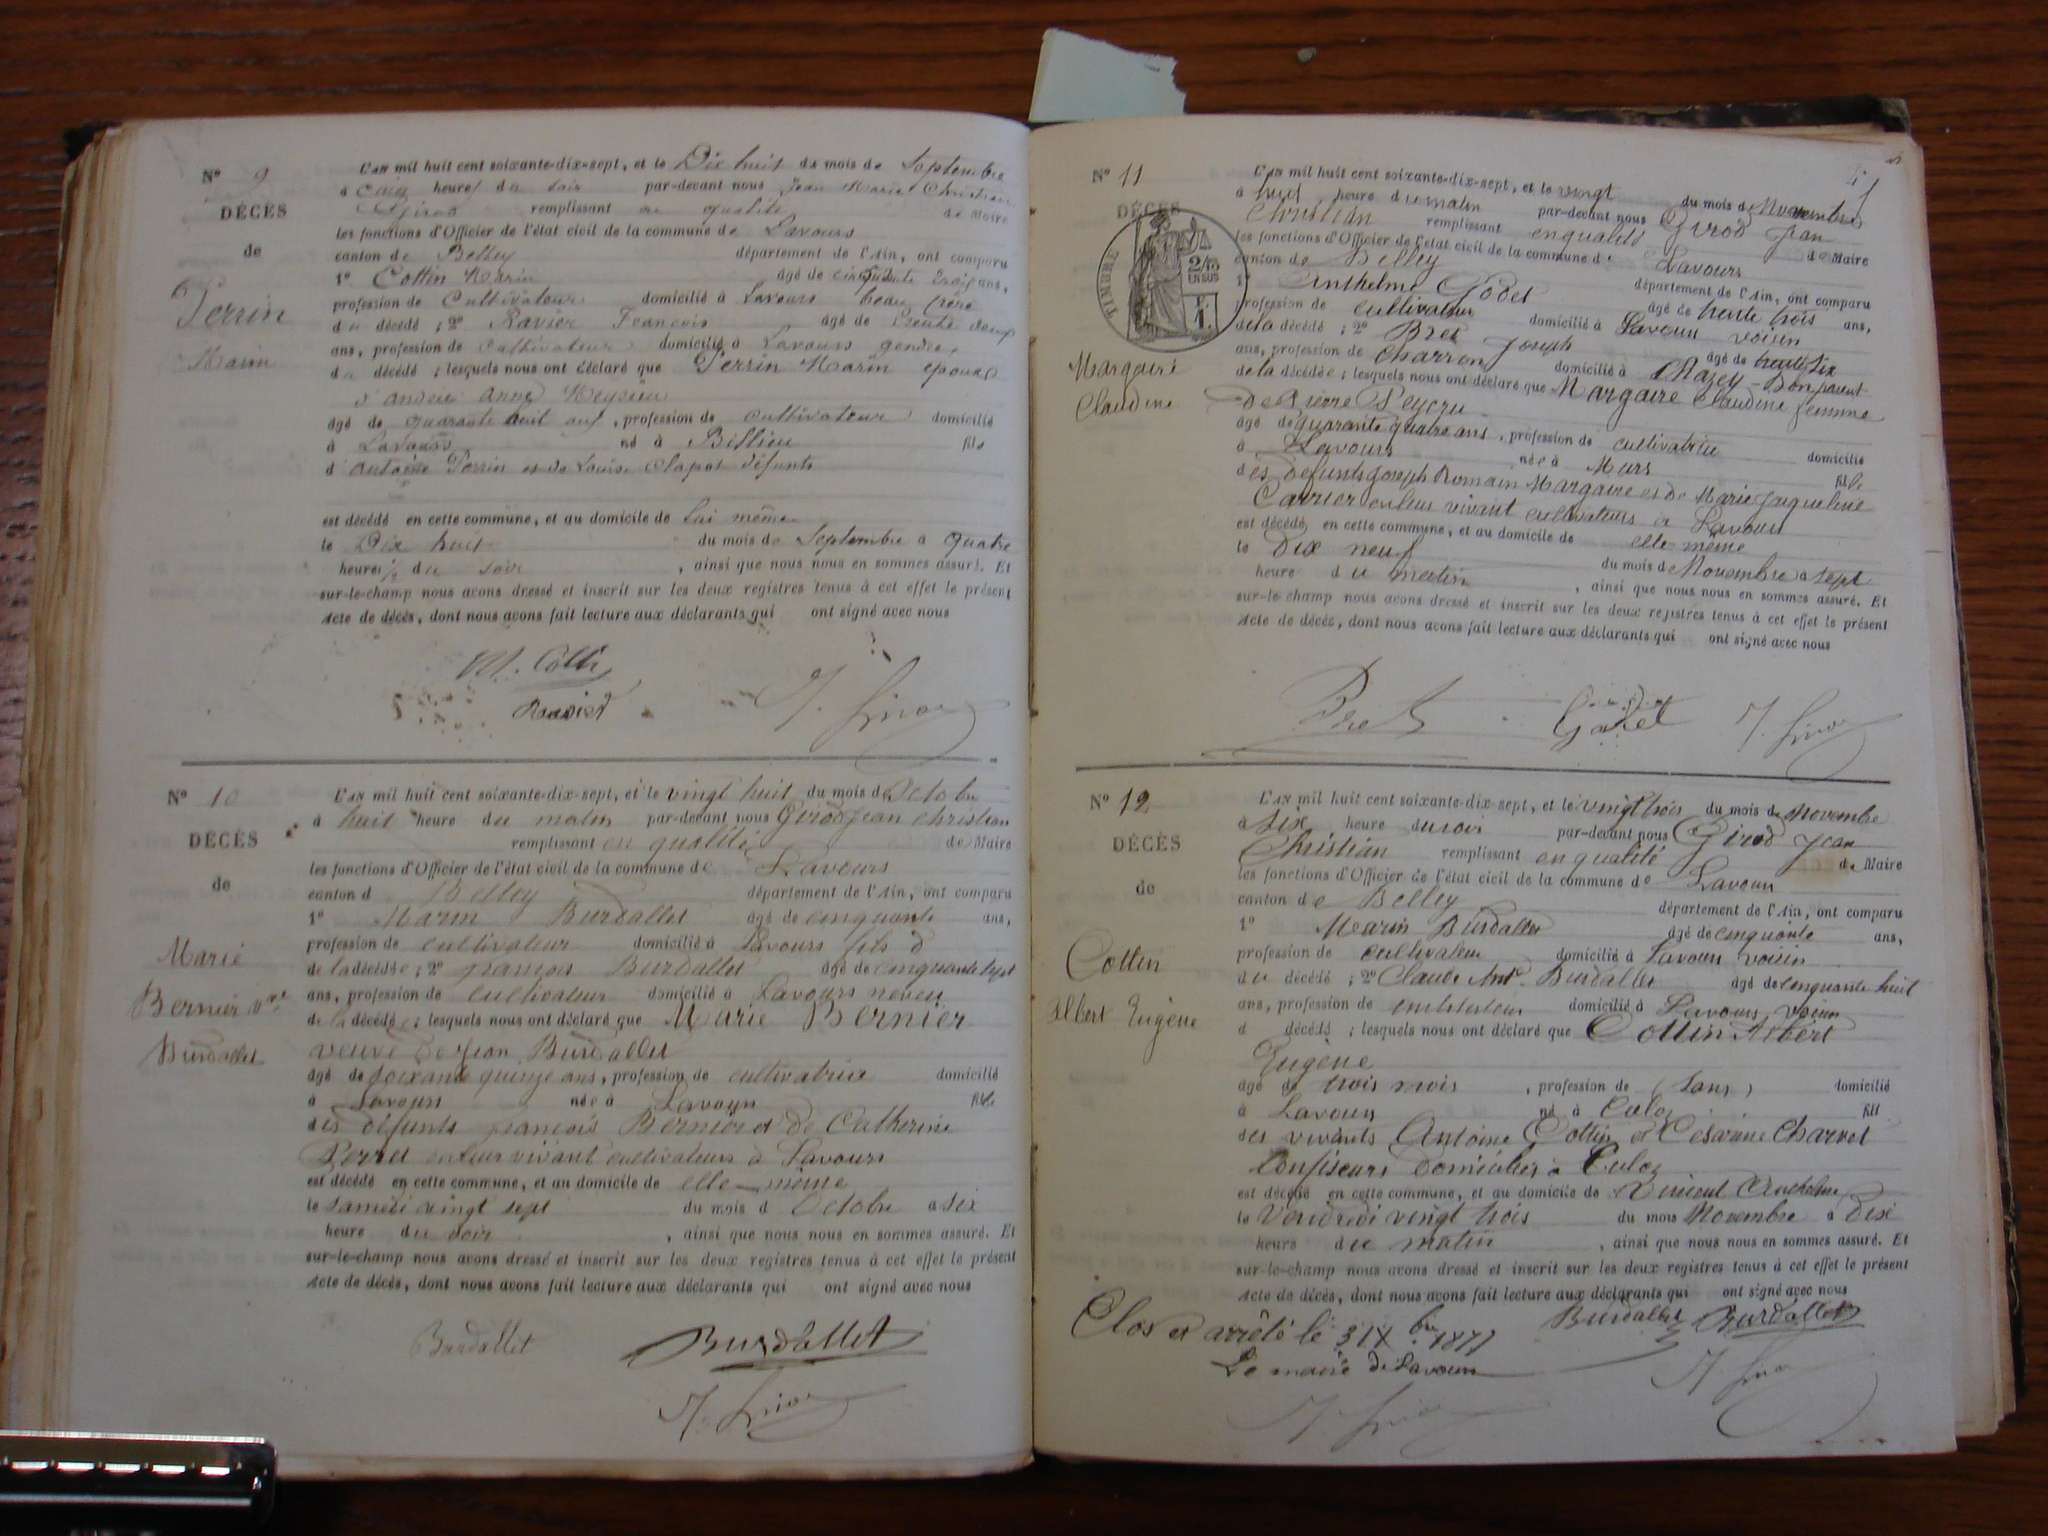 Nº 9
DÉCÈS
de
Perrin
Marin
L'AN mil huit cent soixante-dix-sept, et le Dix huit du mois de Septembre
à cinq heures du soir par-devant nous Jean Marie Christian
Girod remplissant en qualité de Maire
les fonctions d'Officier de l'état civil de la commune de Lavours
canton de Belley département de l'Ain, ont comparu
1º Cottin Marin âgé de cinquante trois ans,
profession de Cultivateur domicilié à Lavours beau frère
du décédé ; 2º Ravier François âgé de trente deux
ans, profession de cultivateur domicilié à Lavours gendre
du décédé ; lesquels nous ont déclaré que Perrin Marin époux
d'andrée Anne
âgé de quarante neuf ans, profession de cultivateur domicilié
à Lavours né à Billieu fils
d'antoine Perrin et de Louise Clapot défunts
est décédé en cette commune, et au domicile de Lui même
le Dix huit du mois de Septembre à quatre
heures ½ du soir, ainsi que nous nous en sommes assuré. Et
sur-le-champ nous avons dressé et inscrit sur les deux registres tenus à cet effet le présent
Acte de décès, dont nous avons fait lecture aux déclarants qui ont signé avec nous
M. Cottin
Ravier
Nº 10
DÉCÈS
de
Marie
Bernier Vve
Burdallet
L'AN mil huit cent soixante-dix-sept, et le vingt huit du mois d'Octobre
à huit heure du matin par-devant nous Girod Jean Christian
remplissant en qualité de Maire
les fonctions d'Officier de l'état civil de la commune de Lavours
canton d Belley département de l'Ain, ont comparu
1º Marin Burdallet âgé de cinquante ans,
profession de cultivateur domicilié à Lavours fils d
de la décédée ; 2º françois Burdallet âgé de cinquante sept
ans, profession de cultivateur domicilié à Lavours neveu
de la décédée ; lesquels nous ont déclaré que Marie Bernier
veuve de Jean Burdallet
âgé de soixante quinze ans, profession de cultivatrice domicilié
à Lavours née à Lavours fille
des défunts françois Bernier et de Catherine
Perret en leur vivant cultivateurs à Lavours
est décédé en cette commune, et au domicile de elle-même
le samedi vingt sept du mois d Octobre à six
heure du soir, ainsi que nous nous en sommes assuré. Et
sur-le-champ nous avons dressé et inscrit sur les deux registres tenus à cet effet le présent
Acte de décès, dont nous avons fait lecture aux déclarants qui ont signé avec nous
Burdallet Burdallet
Nº 11
DÉCÈS
TIMBRE
2/10
EN SUS
Margaire
Claudine
L'AN mil huit cent soixante-dix-sept, et le vingt du mois de Novembre
à huit heure du matin par-devant nous Girod Jean
Christian remplissant en qualité de Maire
les fonctions d'Officier de l'état civil de la commune d Lavours
canton de Belley département de l'Ain, ont comparu
1 Anthelme Godet âgé de trente trois ans,
profession de cultivateur domicilié à Lavours voisin
de la décédé ; 2º Bret Joseph âgé de trente six
ans, profession de Charron domicilié à Chazey-Bon parent
de la décédée ; lesquels nous ont déclaré que Margaire Claudine femme
de Pierre
âgé de quarante quatre ans, profession de cultivatrice domicilié
à Lavours née à Murs fille
des défunts Joseph Romain Margaire et de Marie Jacqueline
Carrier en leur vivant cultivateurs à Lavours
est décédé, en cette commune, et au domicile de elle même
le Dix neuf du mois de Novembre à sept
heure du matin, ainsi que nous nous en sommes assuré. Et
sur-le-champ nous avons dressé et inscrit sur les deux registres tenus à cet effet le présent
Acte de décès, dont nous avons fait lecture aux déclarants qui ont signé avec nous
Bret Godet
Nº 12
DÉCÈS
de
Cottin
Albert Eugène
L'AN mil huit cent soixante-dix-sept, et le vingt trois du mois de Novembre
à six heure du soir par-devant nous Girod Jean
Christian remplissant en qualité de Maire
les fonctions d'Officier de l'état civil de la commune de Lavours
canton de Belley département de l'Ain, ont comparu
1º Marin Burdallet âgé de cinquante ans,
profession de cultivateur domicilié à Lavours voisin
du décédé ; 2º Claude Ant. Burdallet âgé de cinquante huit
ans, profession de cultivateur domicilié à Lavours, voisin
d décédé ; lesquels nous ont déclaré que Cottin Albert
Eugène
âgé de trois mois, profession de (sans) domicilié
à Lavours né à Culoz fils
des vivants Antoine Cottin et Césarine Charvet
Confiseurs domiciliés à Culoz
est décédé en cette commune, et au domicile de Vincent Anthelme
le Vendredi vingt trois du mois Novembre à Dix
heure du matin, ainsi que nous nous en sommes assuré. Et
sur-le-champ nous avons dressé et inscrit sur les deux registres tenus à cet effet le présent
Acte de décès, dont nous avons fait lecture aux déclarants qui ont signé avec nous
Burdallet Burdallet
Clos et arrêté le 31 Xbre 1877
Le maire de Lavours